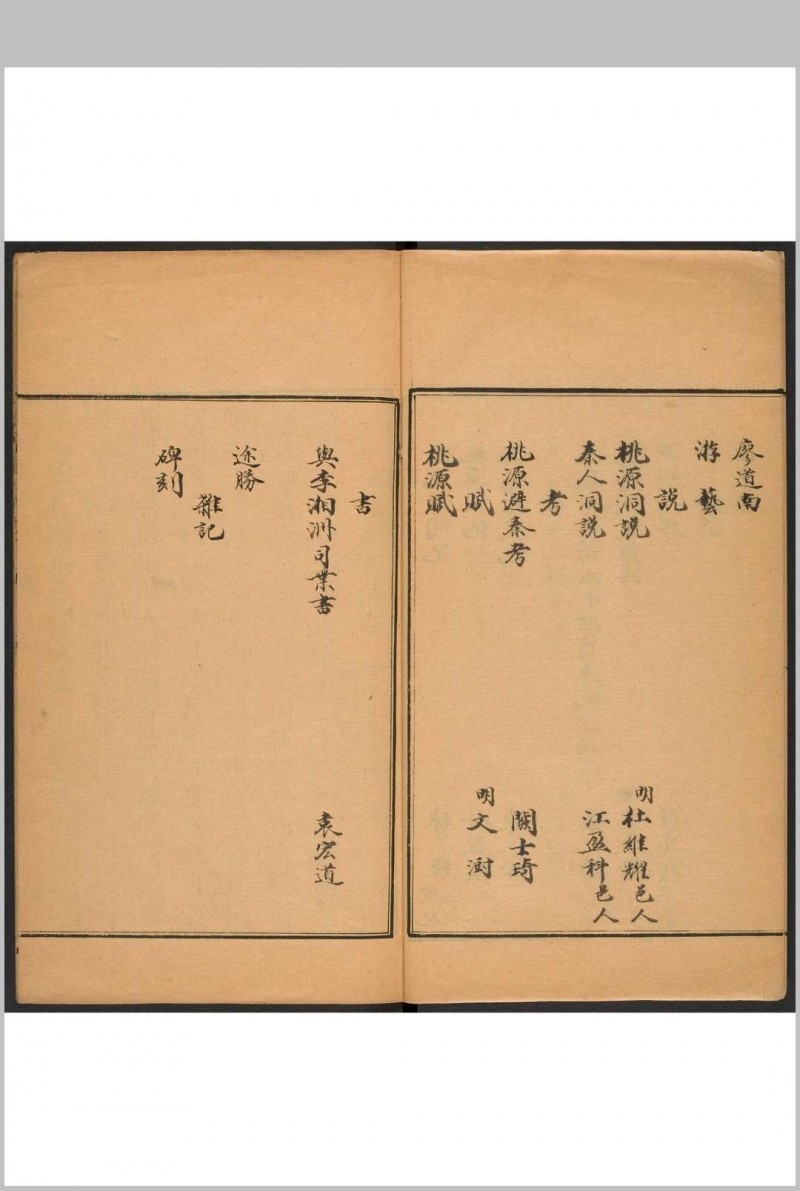 廖道南
游藝
說
桃源洞說 明杜維耀邑人
秦人洞說 江盈科邑人
考
桃源避秦考 闕士琦
賦
桃源賦 明文澍
書
與李湘洲司業書 袁宏道
途勝
雜記
碑刻